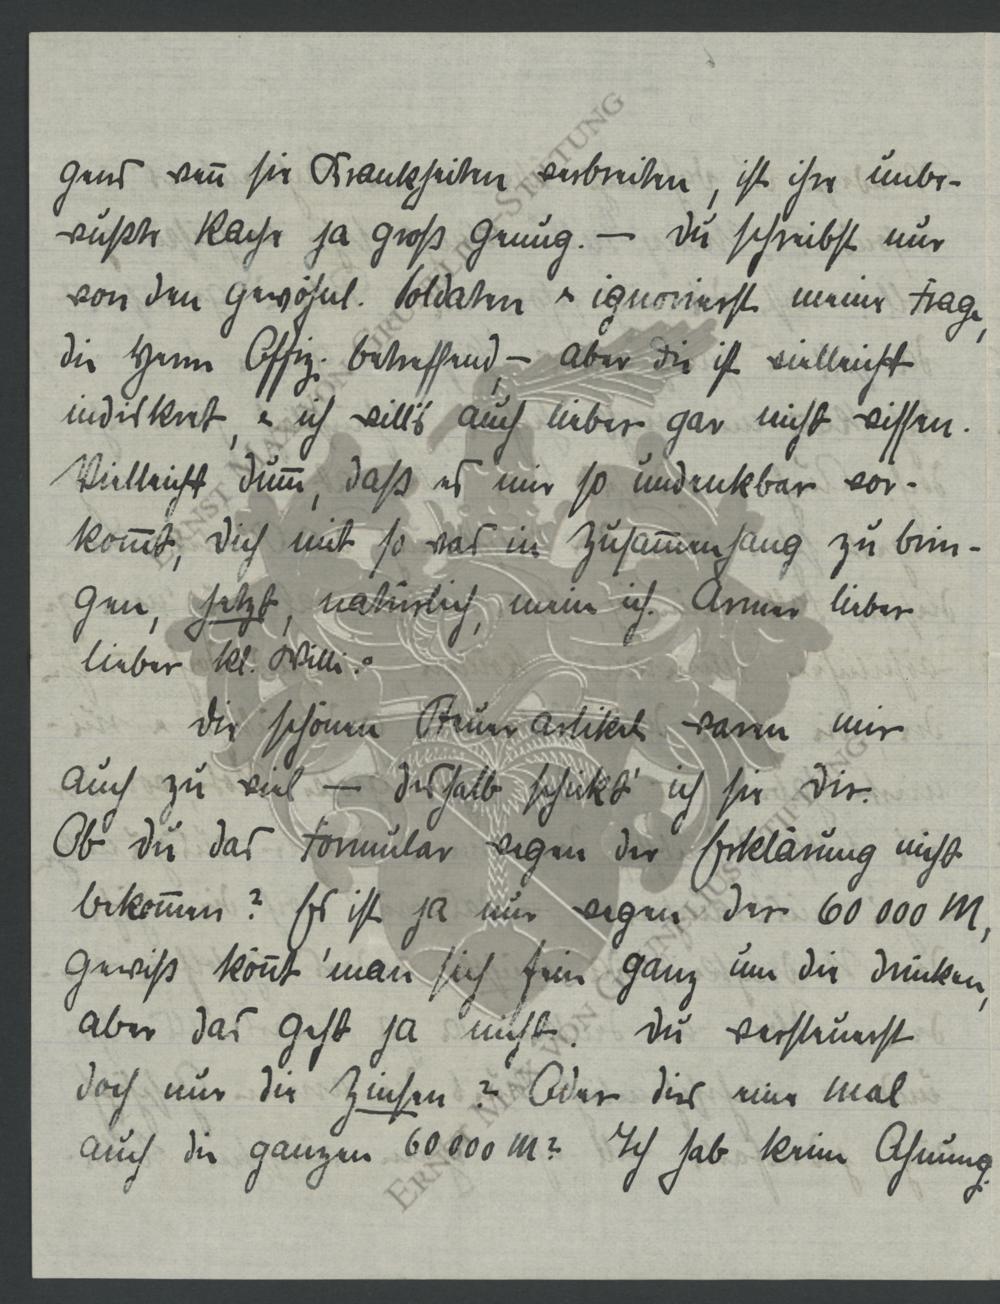 gend wen̄ sie Krankheiten verbreiten, ist ihre unbe-
wußte Rache ja groß genug. — Du schreibst nur
von den gewöhnl. Soldaten & ignorierst meine Frage,
die Herrn Offiz. betreffend, — aber die ist vielleicht
indiskret, & ich will's auch lieber gar nicht wissen.
Vielleicht dum̄, daß es mir so undenkbar vor-
kom̄t, dich mit so was in Zusam̄enhang zu brin-
gen, jetzt, natürlich, mein ich. Armer lieber
lieber kl. Willi.
Die schönen Steuerartikel waren mir
auch zu viel — deshalb schickt' ich sie Dir.
Ob du das Formular wegen der Erklärung nicht
bekom̄en? Es ist ja nur wegen der 60 000 M,
gewiß kön̄t' man sich fein ganz um die drücken,
aber das geht ja nicht. Du versteuerst
doch nur die Zinsen? Oder dies eine Mal
auch die ganzen 60 000 M? Ich hab keine Ahnung.
ERNST MAX VON GRUNELIUS-STIFTUNG
ERNST MAX VON GRUNELIUS-STIFTUNG